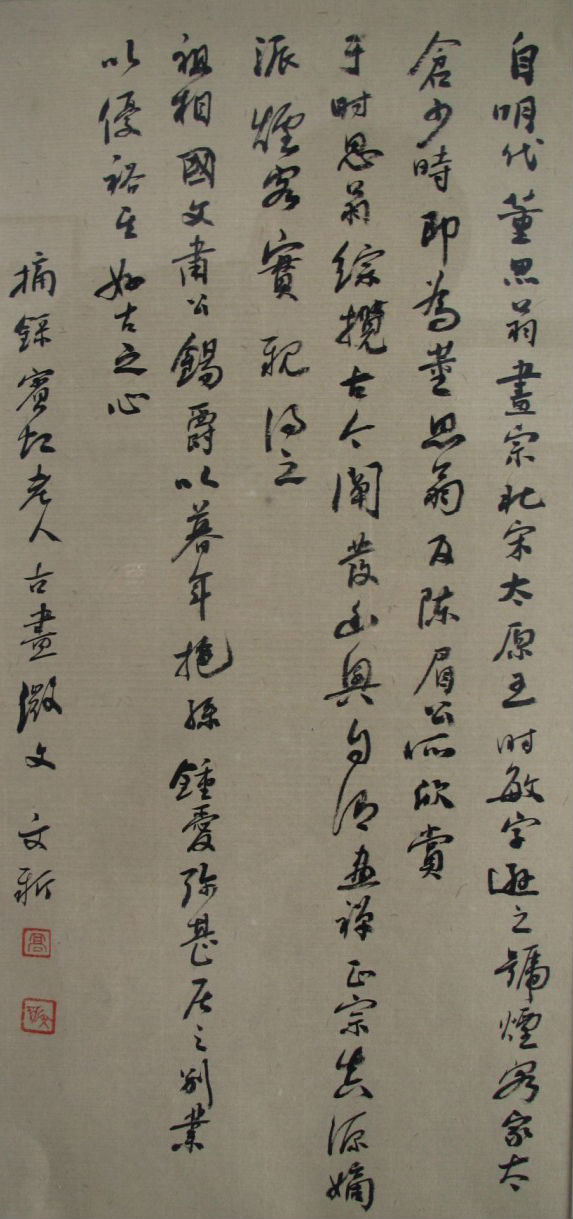 自明代董思翁畫宗北宋太原王时敏字遜之號煙客家太
倉少時即為董思翁及陳眉公所欣赏
于时思翁綜攬古今闡發幽奧自謂画禪正宗真源嫡
派煙客實親得之
祖相國文肅公錫爵以暮年抱孫鍾愛弥甚居之别業
以優裕其好古之心
摘錄賓虹老人古畫微文 文新